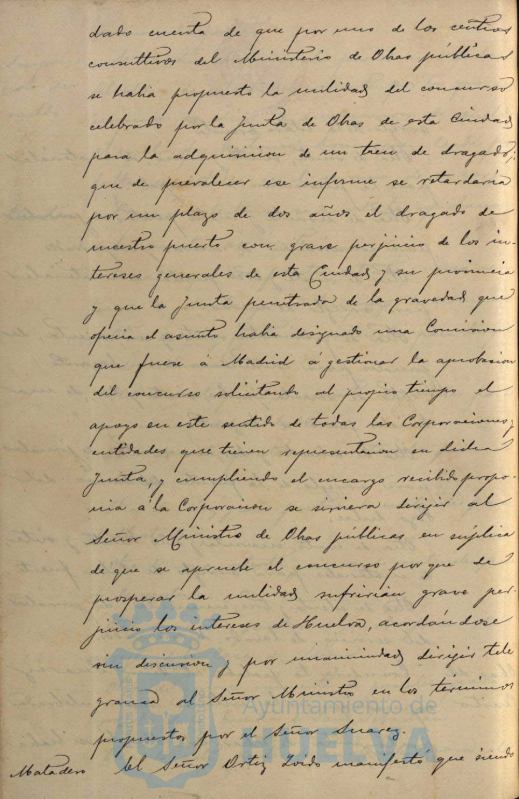 dado cuenta de que por uno de los centros
consultivos del Ministerio de Obas públicas
se habia propuesto la nulidad del concurso
celebrado por la Junta de Obas de esta Ciudad
para la adquisicion de un tren de dragado;
que de prevalecer ese informe se retardaria
por un plazo de dos años el dragado de
nuestro puerto con grave perjuicio de los in-
tereses generales de esta Ciudad y su provincia
y que la Junta penetrada de la gravedad que
ofrecia el asunto habia designado una Comision
que fuese á Madrid á gestionar la aprobasion
del concurso solicitando al propio tiempo el
apoyo en este sentido de todas las Corporaciones y
entidades que tienen representacion en dicha
Junta, y cumpliendo el encargo recibido propo-
nia á la Corporacion se sirviera dirijir al
Señor Ministro de Obas públicas en súplica
de que se apruebe el concurso por que de
prosperar la nulidad sufririan grave per-
juicio los intereses de Huelva, acordándose
sin discusion y por unanimidad dirijir tele
grama al Señor Ministro en los términos
propuestos por el Señor Suarez.
Matadero El Señor Ortiz manifestó que siendo
Ayuntamiento de
HUELVA